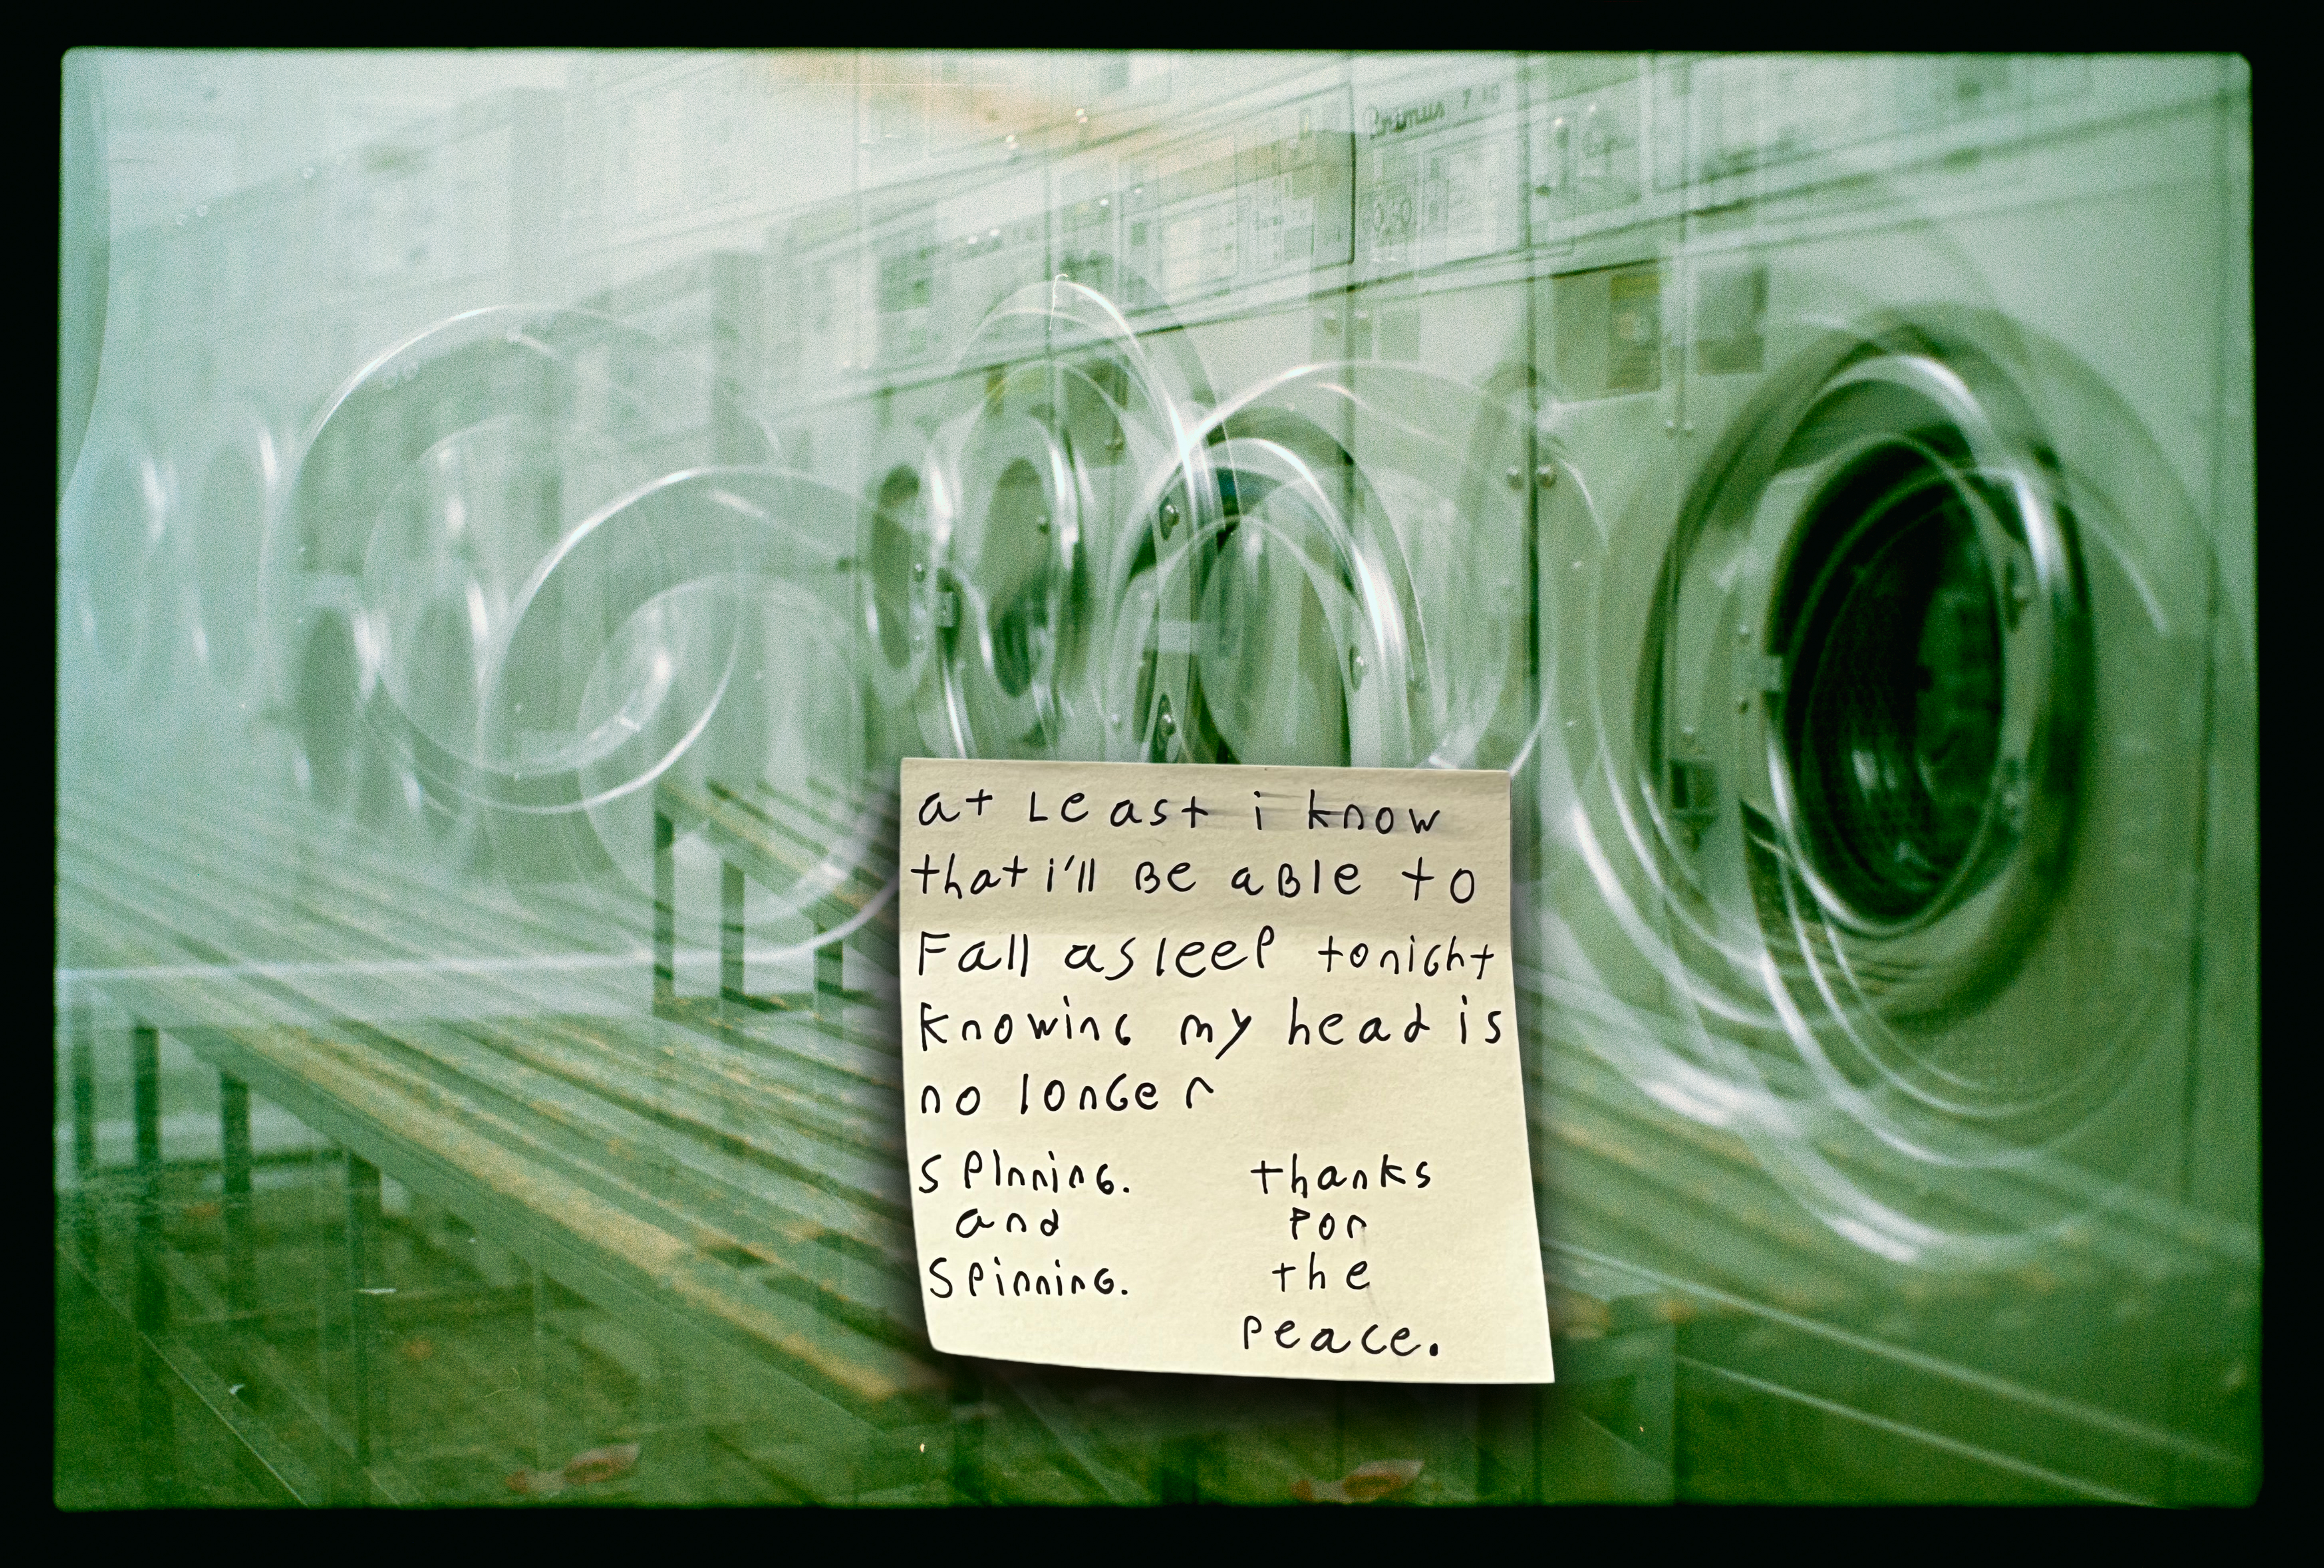 Primus 7 kg
at Least i know
that i'll Be able to
Fall asleep tonight
Knowing my head is
no longer
spinning.
and
Spinning.
thanks
For
the
peace.